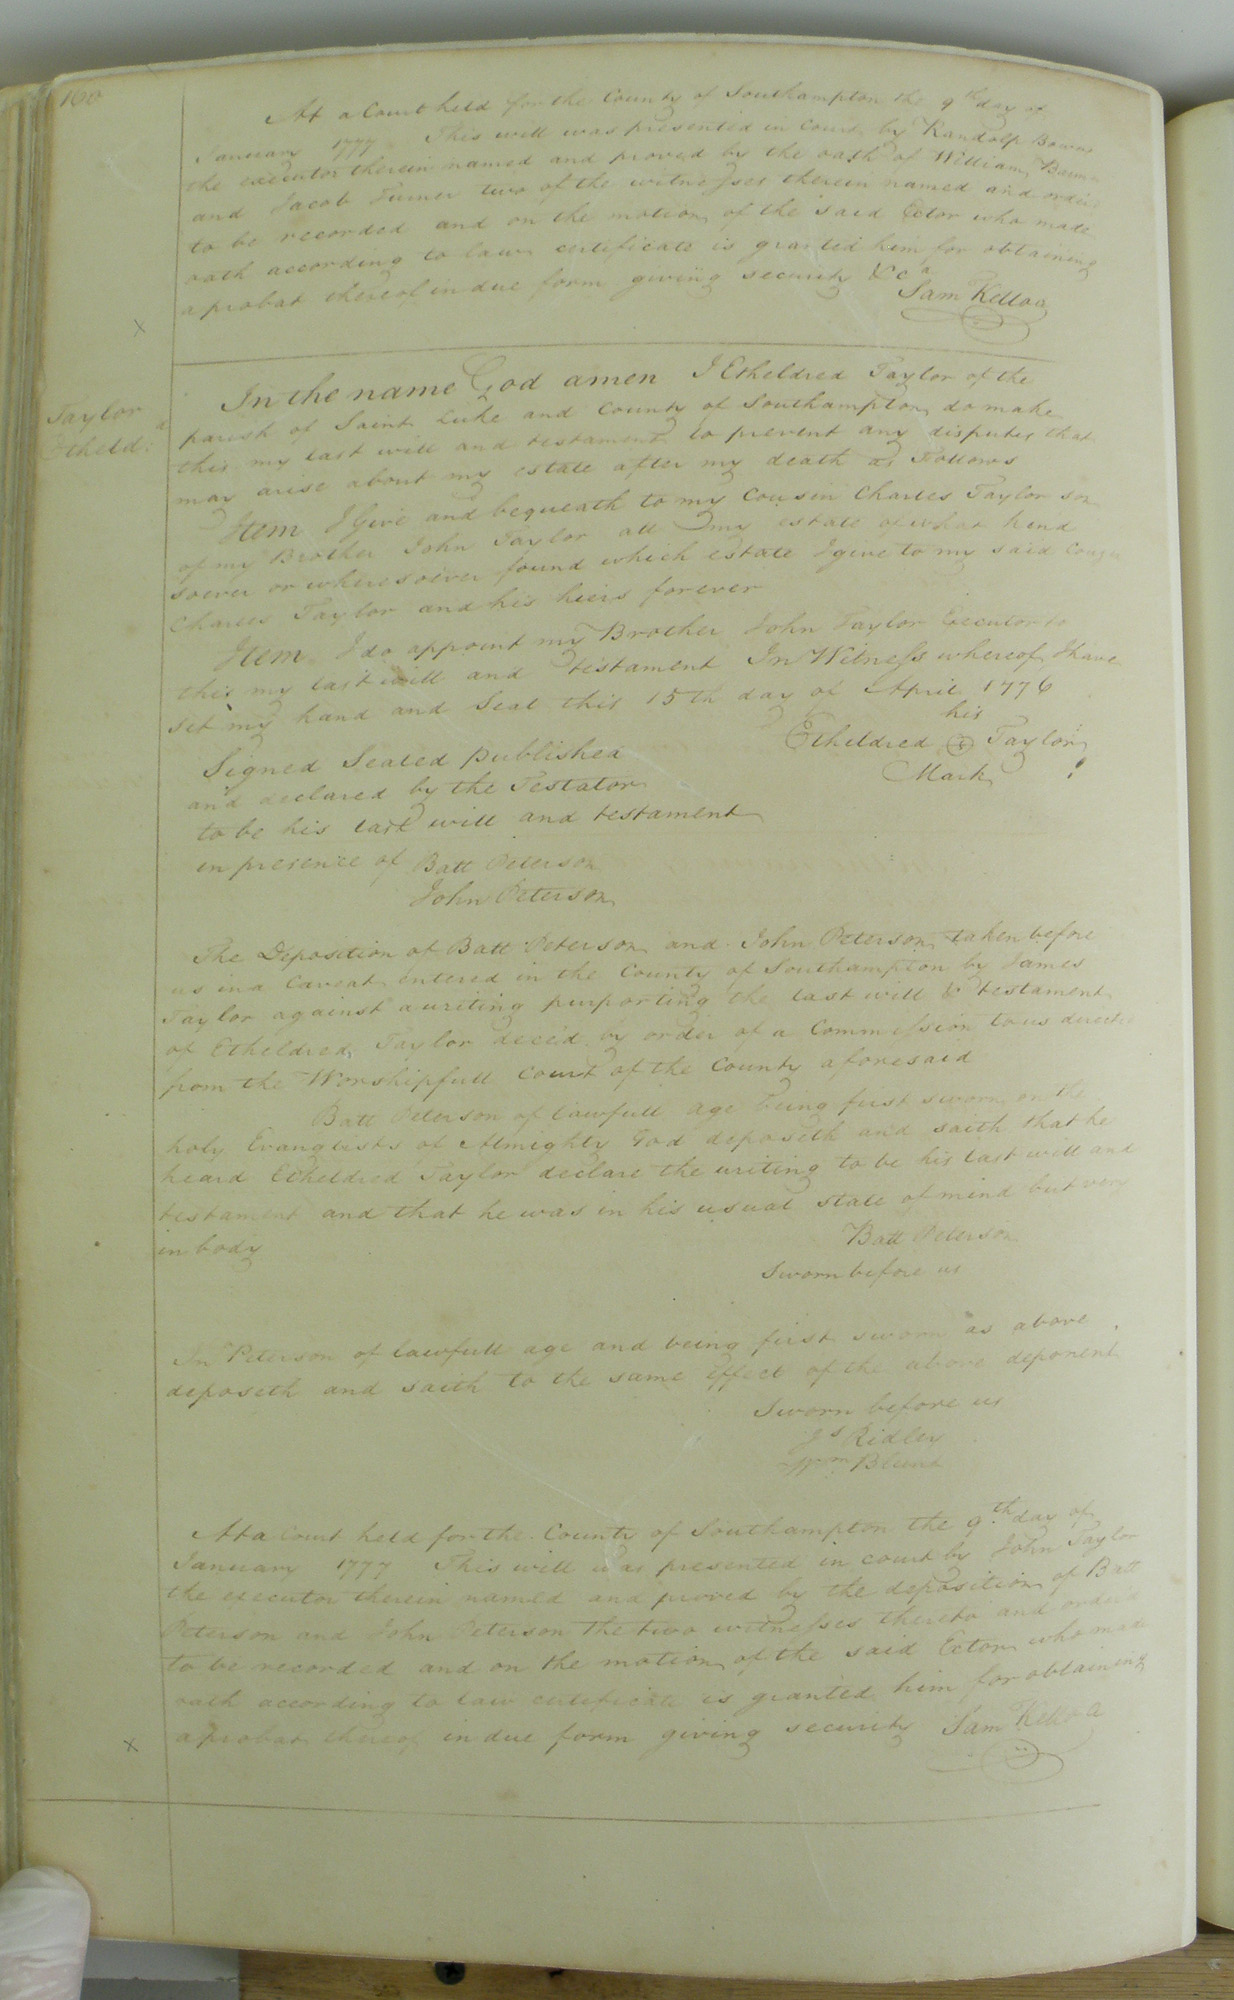 160
At a Court held for the County of Southampton the 9th day of
January 1777 This will was presented in court by Randolp
the executor therein named and proved by the oath of William
and Jacob Turner two of the witnesses therein named and order
to be recorded and on the motion of the said Ector who made
oath according to law certificate is granted him for obtaining
a probat thereof in due form giving security &ca
Sam Kelloa
Taylor
Etheld:d
In the name God amen I Etheldred Taylor of the
parish of Saint Luke and County of Southampton do make
this my last will and testament to prevent any disputes that
may arise about my estate after my death as Follows
Item I Give and bequeath to my Cousin Charles Taylor son
of my Brother John Taylor all my estate of what kind
soever or wheresoever found which estate I give to my said
Charles Taylor and his heirs forever
Item I do appoint my Brother John Taylor Executor to
this my last will and testament In Witness whereof I have
set my hand and Seal this 15th day of April 1776
his
Etheldred Taylor
Mark
Signed Sealed published
and declared by the Testator
to be his last will and testament
in presence of Batt Peterson
John Peterson
The Deposition of Batt Peterson and John Peterson taken before
us in a Caveat entered in the County of Southampton by James
Taylor against a writing purporting the last will & testament
of Etheldred Taylor decēd by order of a Commession to us direct
from the Worshipfull Court of the County aforesaid
Batt Peterson of lawfull age being first sworn on the
holy Evanglists of Almighty God deposeth and saith that he
heard Etheldred Taylor declare the writing to be his last will and
testament and that he was in his usual state of mind but very
in body
Batt Peterson
Sworn before us
Jn° Peterson of lawfull age and being first sworn as above
deposeth and saith to the same effect of the above deponent
Sworn before us
Js Ridley
Wm Blunt
At a Court held for the County of Southampton the 9th day of
January 1777 This will was presented in court by John Taylor
the executor therein named and proved by the deposition of Batt
Peterson and John Peterson the two witnesses thereto and order'd
to be recorded and on the motion of the said Ector who made
oath according to law certificate is granted him for obtaining
a probat thereof in due form giving security Sam Kelloa